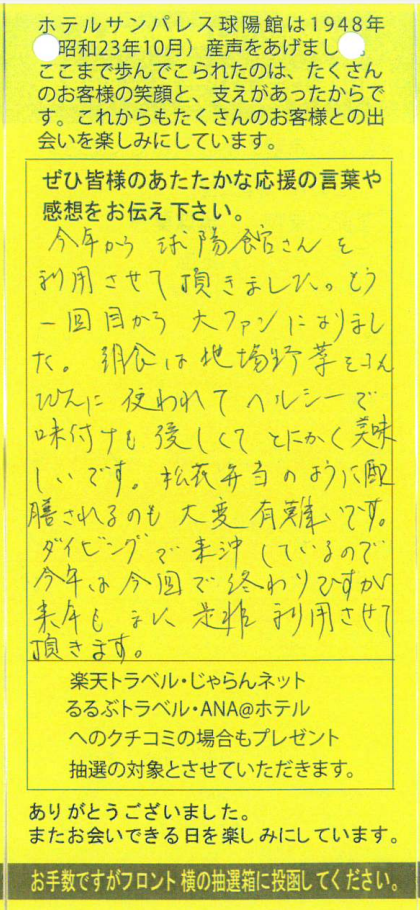 ホテルサンパレス球陽館は1948年
昭和23年10月）産声をあげまし
ここまで歩んでこられたのは、たくさん
のお客様の笑顔と、支えがあったからで
す。これからもたくさんのお客様との出
会いを楽しみにしています。
ぜひ皆様のあたたかな応援の言葉や
感想をお伝え下さい。
今年から球陽館さんを
利用させて頂きました。もう
一回目から大ファンになりまし
た。朝食は地場野菜をふん
だんに使われてヘルシーで
味付けも優しくてとにかく美味
しいです。松花弁当のように配
膳されるのも大変有難いです。
ダイビングで来沖しているので
今年は今回で終わりですが
来年もまた是非利用させて
頂きます。
楽天トラベル・じゃらんネット
るるぶトラベル・ANA@ホテル
へのクチコミの場合もプレゼント
抽選の対象とさせていただきます。
ありがとうございました。
またお会いできる日を楽しみにしています。
お手数ですがフロント横の抽選箱に投函してください。